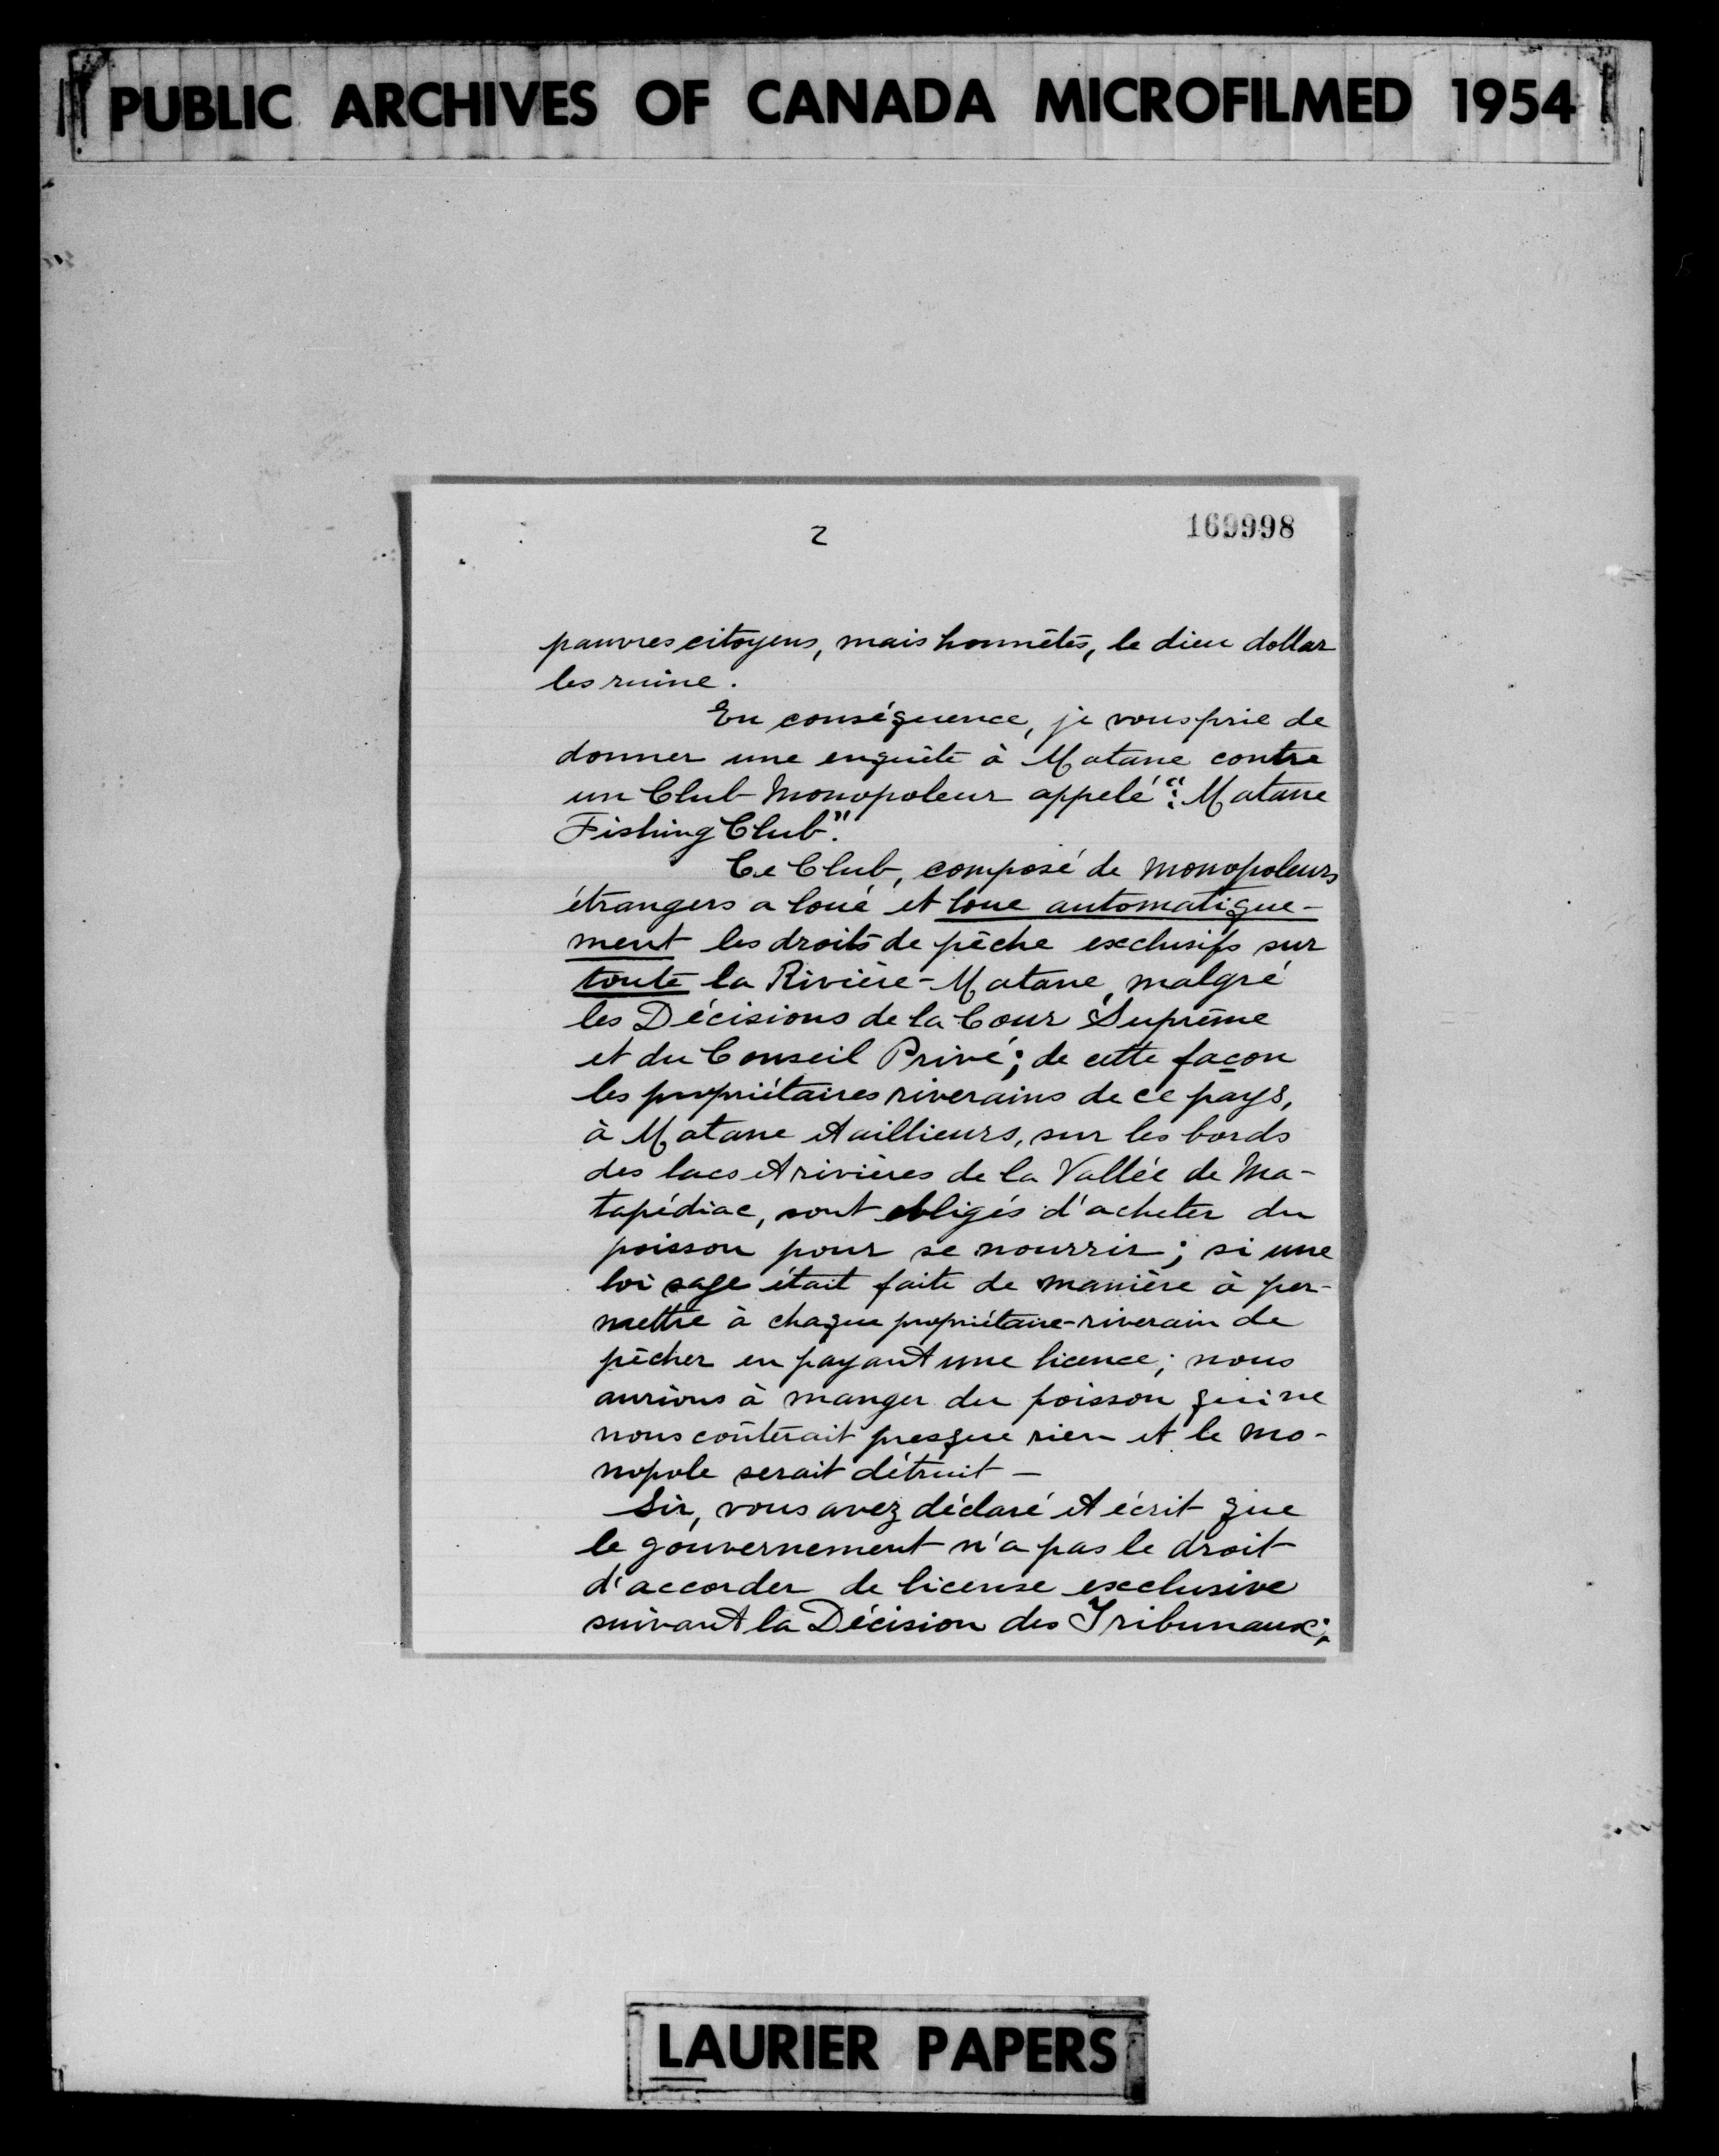 PUBLIC ARCHIVES OF CANADA MICROFILMED 1954
2
169998
pauvres citoyens, mais honnêtes, le dieu dollar
les ruine.
En conséquence, je vous prie de
donner une enquête à Matane contre
un Club Monopoleur appelé: "Matane
Fishing Club".
Ce Club, composé de monopoleurs
étrangers a loué et loue automatique-
ment les droits de pêche exclusifs sur
toute la Rivière-Matane, malgré
les Décisions de la Cour Suprême
et du Conseil Privé; de cette façon
les propriétaires riverains de ce pays,
à Matane et aillieurs, sur les bords
des lacs et rivières de la Vallée de Ma-
tapédiac, sont obligés d'acheter du
poisson pour se nourrir; si une
loi sage était faite de manière à per-
mettre à chaque propriétaire-riverain de
pêcher en payant une licence; nous
aurions à manger du poisson qui ne
nous coûterait presque rien et le mo-
nopole serait détruit —
Sir, vous avez déclaré et écrit que
le gouvernement n'a pas le droit
d'accorder de license exclusive
suivant la Décision des Tribunaux;
LAURIER PAPERS